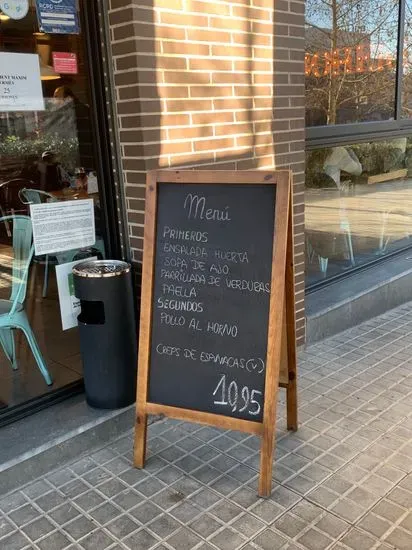 Menú
PRIMEROS
ENSALADA HUERTA
SOPA DE AJO
PARRILLADA DE VERDURAS
PAELLA
SEGUNDOS
POLLO AL HORNO
CREPS DE ESPINACAS (V)
10,95
Google
25